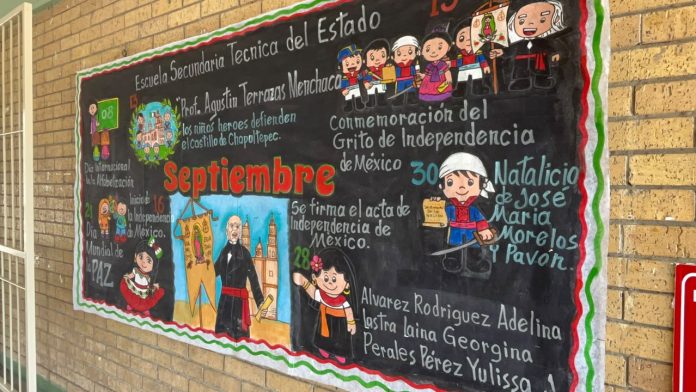 Escuela Secundaria Tecnica del Estado
Prof. Agustin Terrazas Menchaca
08
13
los niños heroes defienden
el castillo de Chapultepec.
15
Conmemoración del
Grito de Independencia
de México
Dia Internacional
de la Alfabetización
Septiembre
16
Inicio de
la Independencia
de México.
21
Dia
Mundial de
la PAZ
28
Se firma el acta de
Independencia de
México.
30
Natalicio
de José
Maria
Morelos
y Pavón.
Alvarez Rodriguez Adelina
Lastra Laina Georgina
Perales Pérez Yulissa